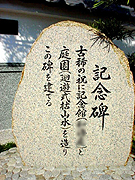 記念碑
古稀の祝に記念館 と
庭園「廻遊式枯山水」を造り
この碑を建てる